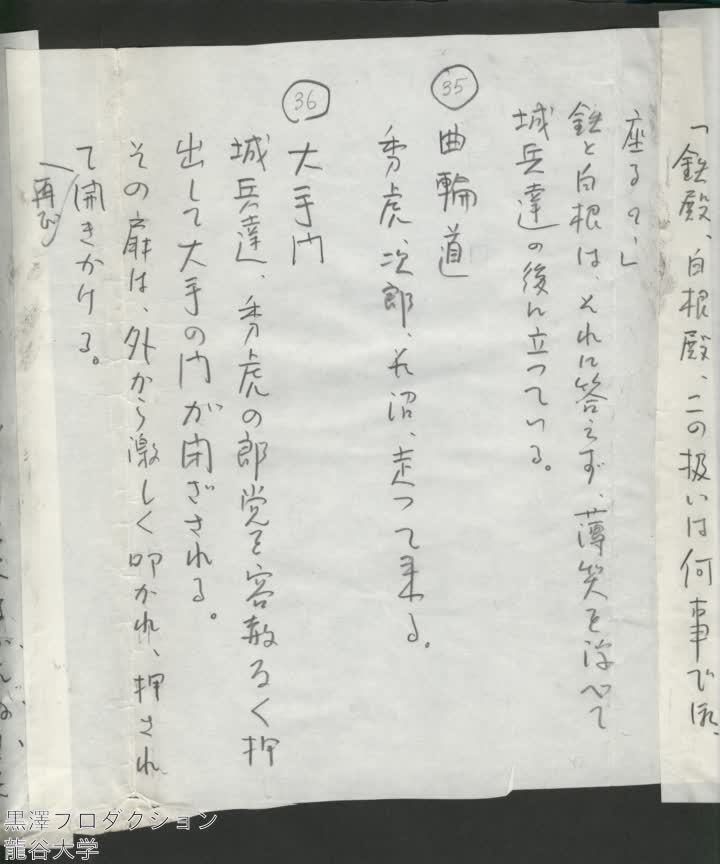 「鉄殿、白根殿、この扱いは何事で御
座るの、」
鉄と白根は、それに答えず、薄笑を浮べて
城兵達の後に立つている。
35
曲輪道
秀虎、次郎、長沼、走つて来る。
36
大手門
城兵達、秀虎の郎党を容赦なく押
出して大手の門が閉ざされる。
その扉は、外から激しく叩かれ、押され、
再び
て開きかける。
黒澤プロダクション
龍谷大学